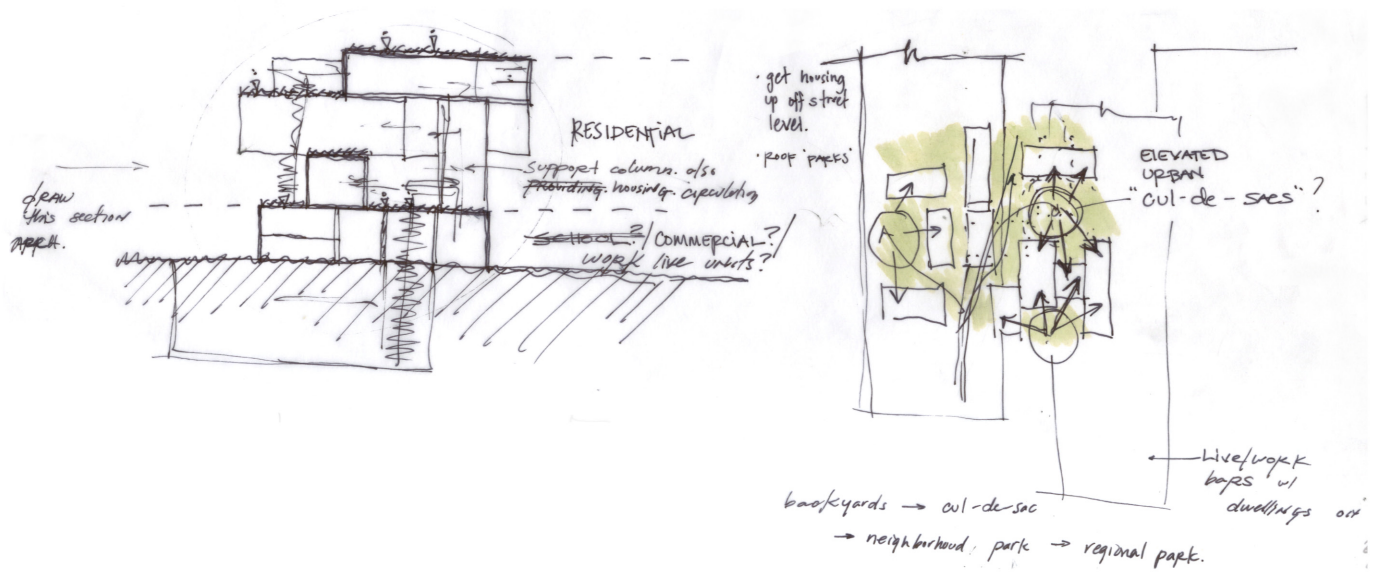 draw
this section
APPH.
RESIDENTIAL
support column. also
Providing housing circulation
SCHOOL?/COMMERCIAL?/
work live units?
· get housing
up off street
level.
· ROOF 'PARKS'
ELEVATED
URBAN
"CUL-de-SACS"?
Live/work
bars w/
dwellings on
backyards → cul-de-sac
→ neighborhood park → regional park.